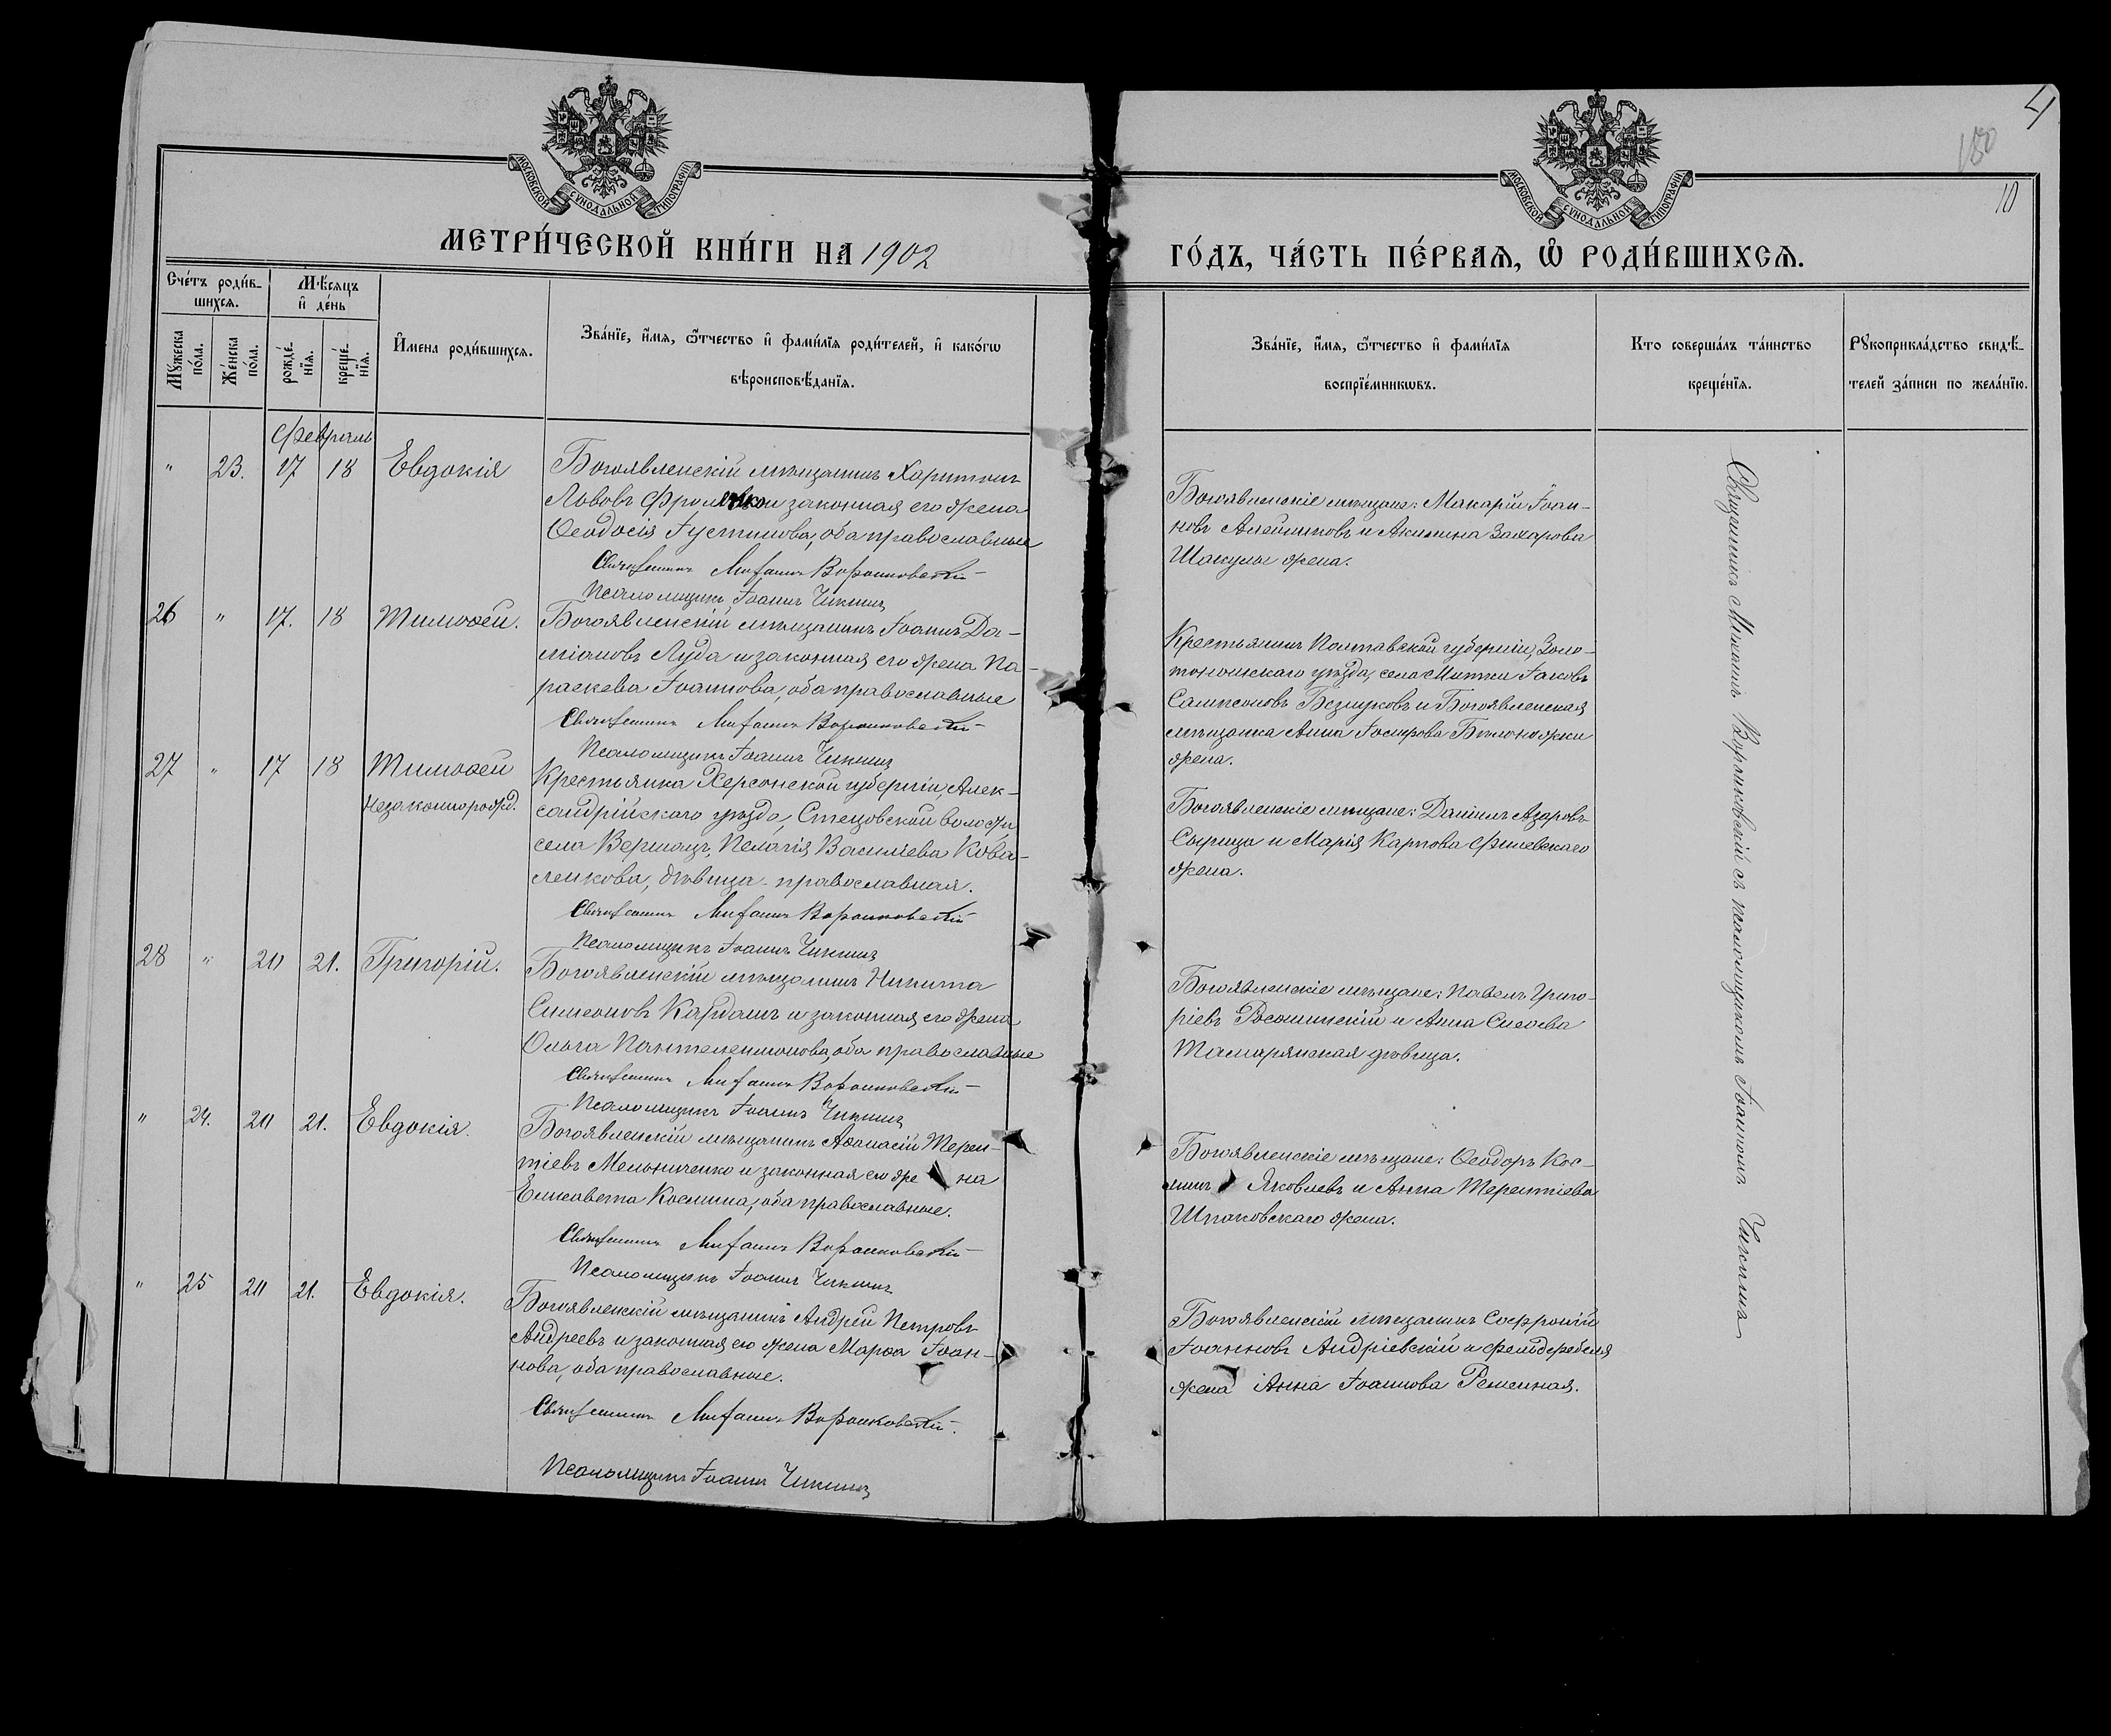 4
180
10
МОСКОВСКОЙ СѴНОДАЛЬНОЙ ТИПОГРАФІИ
МОСКОВСКОЙ СѴНОДАЛЬНОЙ ТИПОГРАФІИ
МЕТРИ́ЧЕСКОЙ КНИ́ГИ НА 1902
ГО́ДЪ, ЧА́СТЬ ПЕ́РВАѦ, Ѽ РОДИ́ВШИХСѦ.
Сче́тъ роди́в-
шихсѧ.
Мѣ́сяцъ
и҆ де́нь
Мꙋ́жеска
по́ла.
Же́нска
по́ла.
рожде́-
нїѧ.
креще́-
нїѧ.
И҆мена роди́вшихсѧ.
Зва́нїе, и҆́мѧ, ѻ҆́тчество и҆ фами́лїѧ роди́телей, и҆ како́гѡ
вѣроисповѣ́данїѧ.
Зва́нїе, и҆́мѧ, ѻ҆́тчество и҆ фами́лїѧ
воспрїе́мникѡвъ.
Кто соверша́лъ та́инство
креще́нїѧ.
Рꙋкоприкла́дство свидѣ́-
телей за́писи по жела́нїю.
Февраль
" 23. 17 18 Евдокія
Богоявленскій мѣщанинъ Харитонъ
Львовъ и законная его жена
Ѳеодосія Іустинова, оба православные
Священникъ Михаилъ Воронковскій
Псаломщикъ Іоаннъ Чикинъ
Богоявленскіе мѣщане: Макарій Іоан-
новъ Алейниковъ и Акилина Захарова
Шакулы жена.
26 " 17. 18 Тимоѳей.
Богоявленскій мѣщанинъ Іоаннъ Да-
міановъ Луда и законная его жена Па-
раскева Іоаннова, оба православные
Священникъ Михаилъ Воронковскій
Псаломщикъ Іоаннъ Чикинъ
Крестьянинъ Полтавской губерніи, Золо-
тоношскаго уѣзда, села Митки Іаковъ
Сампсоновъ Безруковъ и Богоявленская
мѣщанка Анна Іосифова Бѣлоножки
жена.
27 " 17 18 Тимоѳей
незаконнорожд.
Крестьянка Херсонской губерніи, Алек-
сандрійскаго уѣзда, Стецовской волости
села Вершацъ, Пелагія Василіева Кова-
ленкова, дѣвица православная.
Священникъ Михаилъ Воронковскій
Псаломщикъ Іоаннъ Чикинъ
Богоявленскіе мѣщане: Даніилъ Азаровъ
Сырица и Марія Карпова Фишевскаго
жена.
28 " 20 21. Григорій.
Богоявленскій мѣщанинъ Никита
Симеоновъ Кардашъ и законная его жена
Ольга Пантелеимонова, оба православные
Священникъ Михаилъ Воронковскій
Псаломщикъ Іоаннъ Чикинъ
Богоявленскіе мѣщане: Павелъ Григо-
ріевъ Росошинскій и Анна Сисоева
Тамарянская дѣвица.
" 24. 20 21. Евдокія.
Богоявленскій мѣщанинъ Аѳанасій Терен-
тіевъ Мельниченко и законная его жена
Елисавета Космина, оба православные.
Священникъ Михаилъ Воронковскій
Псаломщикъ Іоаннъ Чикинъ
Богоявленскіе мѣщане: Ѳеодоръ Кос-
минъ Яковлевъ и Анна Терентіева
Шпаковскаго жена.
" 25 20 21. Евдокія.
Богоявленскій мѣщанинъ Андрей Петровъ
Андреевъ и законная его жена Марѳа Іоан-
нова, оба православные.
Священникъ Михаилъ Воронковскій.
Псаломщикъ Іоаннъ Чикинъ
Богоявленскій мѣщанинъ Софроній
Іоанновъ Андріевскій и фельдфебеля
жена Анна Іоаннова Ременная.
Священникъ Михаилъ Воронковскій съ псаломщикомъ Іоанномъ Чикинымъ